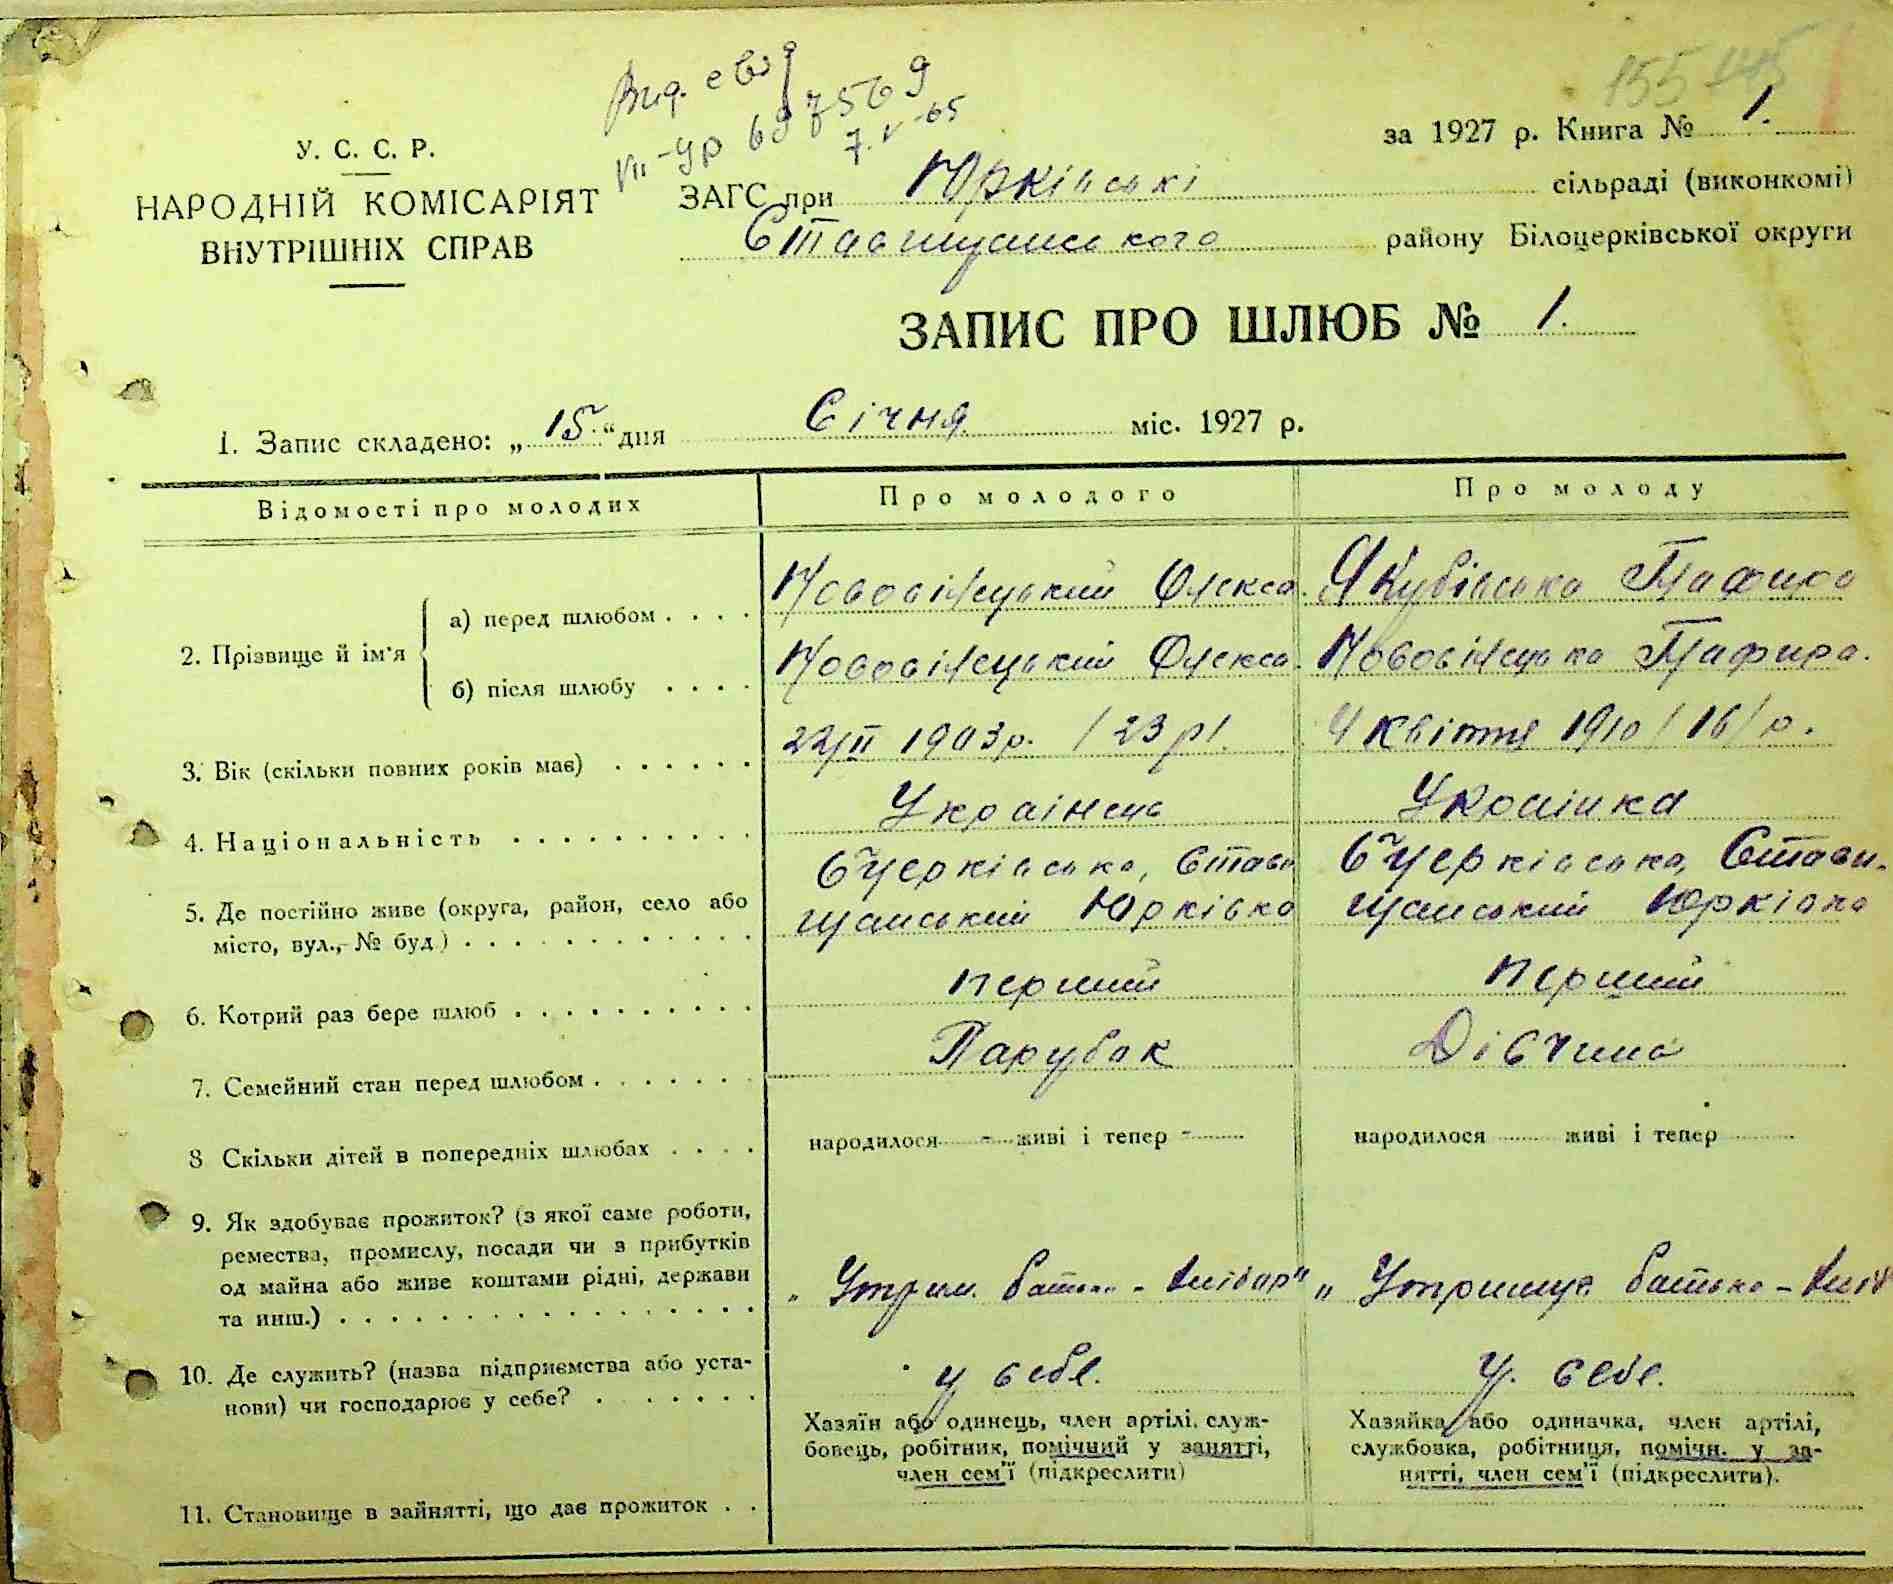 155 145
Вид. свід
VII-УР 697569
7.V-65
У. С. С. Р.
НАРОДНІЙ КОМІСАРІЯТ
ВНУТРІШНІХ СПРАВ
за 1927 р. Книга № 1.
ЗАГС при Юрківські сільраді (виконкомі)
Ставищанського району Білоцерківської округи
ЗАПИС ПРО ШЛЮБ № 1.
1. Запис складено: „15“ дня Січня міс. 1927 р.
Відомості про молодих
Про молодого
Про молоду
2. Прізвище й ім'я
а) перед шлюбом . . . .
Новосілецький Олекса.
Якубівська Тафира
б) після шлюбу . . . .
Новосілецький Олекса.
Новосілецька Тафира.
3. Вік (скільки повних років має) . . . . . .
22/II 1903р. /23 р/.
4 квітня 1910 /16/ р.
4. Національність . . . . . . . . . .
Українець
Українка
5. Де постійно живе (округа, район, село або
місто, вул., № буд.) . . . . . . . . . . . .
БЧерківська, Стави
щанський Юрківка
БЧерківська, Стави-
щанський Юрківка
6. Котрий раз бере шлюб . . . . . . . . . .
перший
перший
7. Семейний стан перед шлюбом . . . . . . .
Парубак
Дівчина
8 Скільки дітей в попередніх шлюбах . . . .
народилося - живі і тепер -
народилося живі і тепер
9. Як здобуває прожиток? (з якої саме роботи,
ремества, промислу, посади чи з прибутків
од майна або живе коштами рідні, держави
та инш.) . . . . . . . . . . . . . . . .
„Утрим. батька - хлібор"
„Утримує. батька - хліб
10. Де служить? (назва підприємства або уста-
нови) чи господарює у себе? . . . . . . .
у себе.
У. себе.
11. Становище в зайнятті, що дає прожиток . .
Хазяїн або одинець, член артілі, служ-
бовець, робітник, помічний у занятті,
член сем'ї (підкреслити)
Хазяйка або одиначка, член артілі,
службовка, робітниця, помічн. у за-
нятті, член сем'ї (підкреслити).